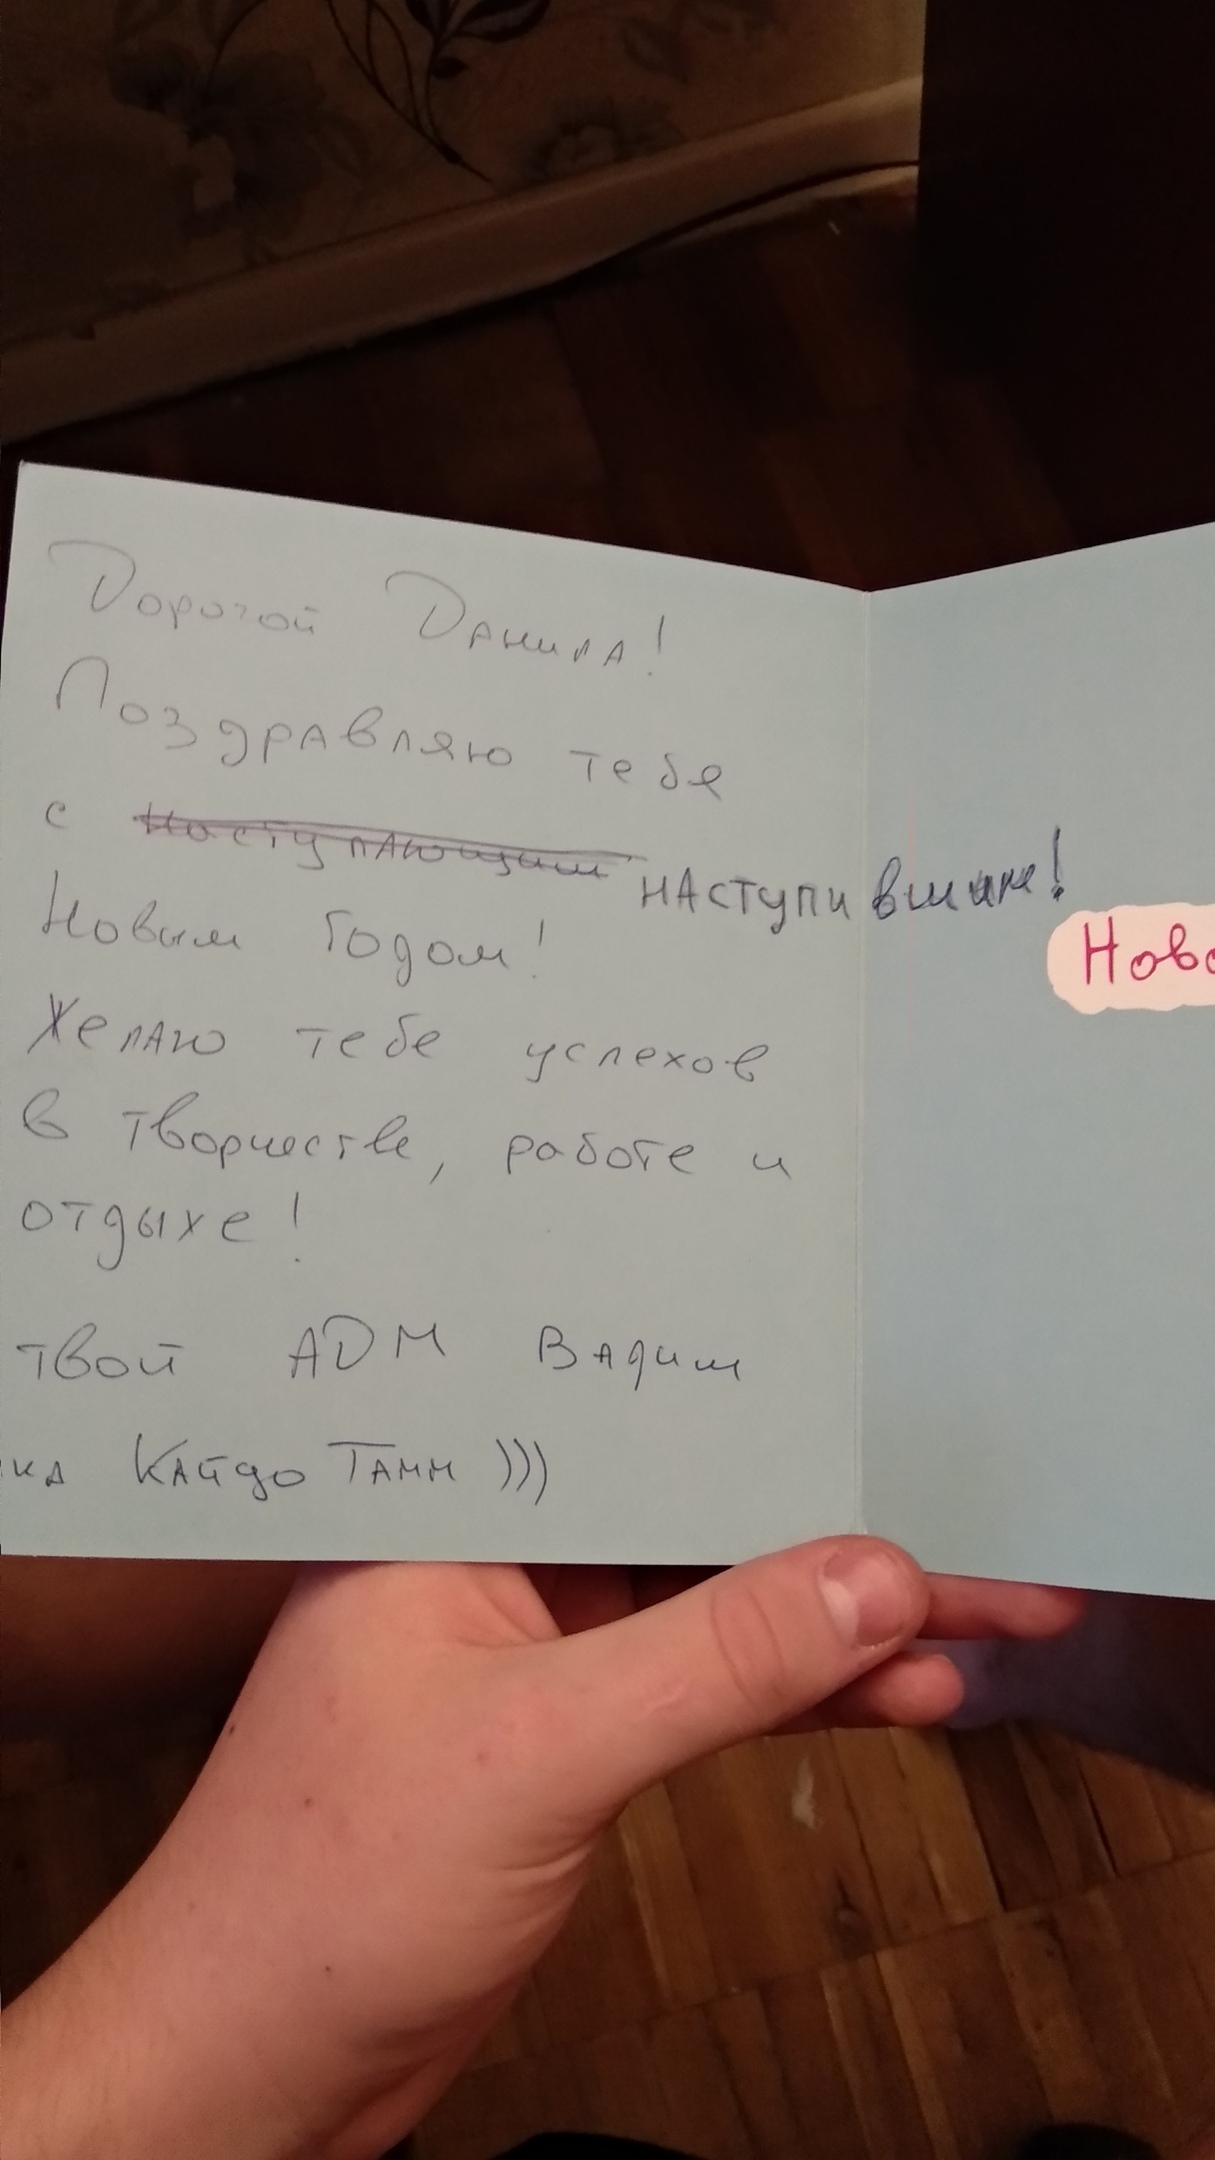 Дорогой Данила!
Поздравляю тебя
с наступающим наступившим!
Новым Годом!
Желаю тебе успехов
в творчестве, работе и
отдыхе!
твой АДМ Вадим
Кайдо Тамм )))
Ново